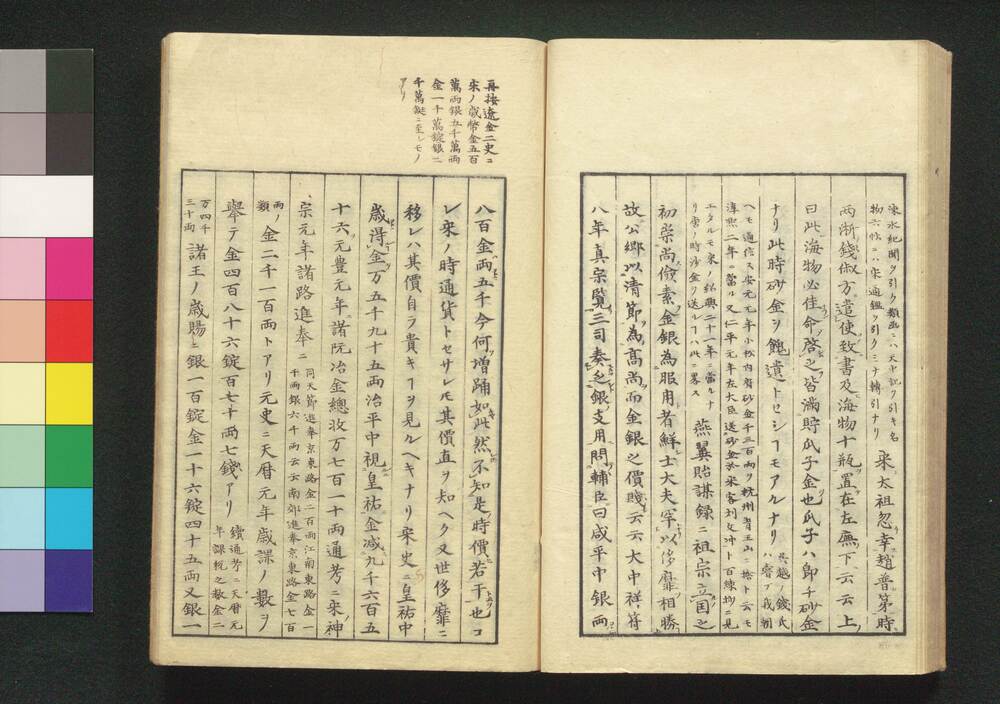 涑水紀聞ヲ引ク類函ニハ天中記ヲ引キ名
物六帖ニハ宋通鑑ヲ引クミナ轉引ナリ
宋太祖忽幸趙普第時
両浙錢俶方遣使致書及海物十瓶置在左廡下云云上
曰此海物必佳命啓之皆滿貯瓜子金也瓜子ハ即千砂金
ナリ此時砂金ヲ餽遺トセシヿモアルナリ
呉越ノ錢氏
ハ嘗テ我朝
ヘモ通信ス安元元年小松内府砂金千三百両ヲ杭州育王山ニ捨ト云モ
淳熙二年ニ當ル又仁平元年左大臣送砂金於宋客劉文冲ト百練抄ニ見
エタルモ宋ノ紹興二十一年ニ當ルナ
リ常ノ時沙金ヲ送ルヿハ此ニ畧ス
燕翼貽謀録ニ祖宗立国之
初崇尚儉素金銀為服用者鮮士大夫罕以侈靡相勝
故公卿以清節為髙尚而金銀之價賤云云大中祥符
八年真宗覧三司奏乏銀支用問輔臣曰咸平中銀両
再按遼金二史ニ
宋ノ歳幣金五百
萬両銀五千萬両
金一千萬錠銀二
千萬錠ニ至レモノ
アリ
八百金両五千今何増踊如此然不知是時價若干也コ
レ宋ノ時通貨トセサレモ其價直ヲ知ヘク又世侈靡ニ
移レハ其價自ラ貴キヿヲ見ルヘキナリ宋史ニ皇祐中
歳得金万五千九十五両治平中視皇祐金减九千六百五
十六元豊元年諸阬冶金總收万七百一十両通考ニ宋神
宗元年諸路進奉ニ
同天節進奉京東路金二百両江南東路金一
千両銀六千両云云南郊進奉京東路金七百
両ノ
類
金二千一百両トアリ元史ニ天暦元年歳課ノ數ヲ
舉テ金四百八十六錠百七十両七錢アリ
續通考ニ天暦元
年課税之数金二
万四千
三十両
諸王ノ歳賜ニ銀一百錠金一十六錠四十五両又銀一